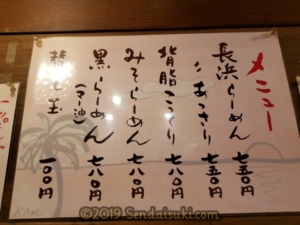 メニュー
長浜らーめん 七五〇円
〃 あっさり 七五〇円
背脂こってり 七八〇円
みそらーめん 七八〇円
黒らーめん(マー油) 七八〇円
替え玉 一〇〇円
©2019 Sendaisuki.com